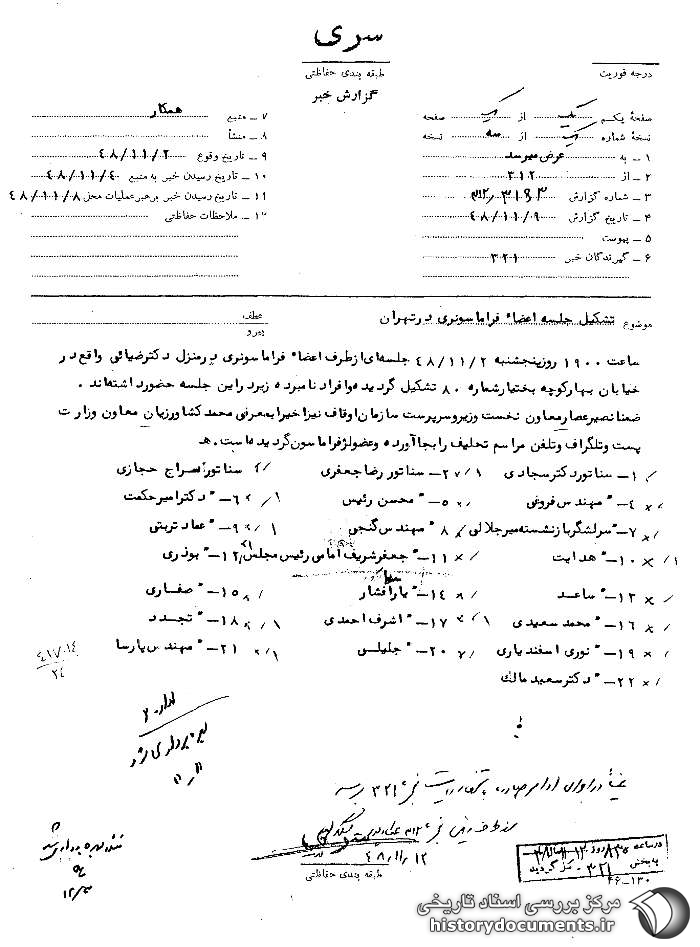 سری
طبقه بندی حفاظتی
درجه فوریت
گزارش خبر
صفحهٔ یکم یک از یک صفحه
نسخهٔ شماره یک از سه نسخه
۱ ـ به عرض میرسد
۲ ـ از ۳۱۲
۳ ـ شماره گزارش
۴ ـ تاریخ گزارش ۴۸/۱۱/۹
۵ ـ پیوست
۶ ـ گیرندگان خبر ۳۲۱
۷ ـ منبع همکار
۸ ـ منشأ
۹ ـ تاریخ وقوع ۴۸/۱۱/۲
۱۰ ـ تاریخ رسیدن خبر به منبع ۴۸/۱۱/۴
۱۱ ـ تاریخ رسیدن خبر برهبر عملیات محل ۴۸/۱۱/۸
۱۲ ـ ملاحظات حفاظتی
موضوع تشکیل جلسه اعضاء فراماسونری در تهران
عطف
پیرو
ساعت ۱۹۰۰ روز پنجشنبه ۴۸/۱۱/۲ جلسه‌ای از طرف اعضاء فراماسونری در منزل دکتر ضیائی واقع در
خیابان بهار کوچه بختیار شماره ۸۰ تشکیل گردیده و افراد نامبرده زیر در این جلسه حضور داشته‌اند .
ضمنا نصیر عصار معاون نخست وزیر و سرپرست سازمان اوقاف نیز اخیرا به معرفی محمد کشاورزیان معاون وزارت
پست و تلگراف و تلفن مراسم تحلیف را بجا آورده و عضو لژ فراماسون گردیده است. هـ
۱ـ سناتور دکتر سجادی ۲ـ سناتور رضا جعفری ۳ـ سناتور سراج حجازی
۴ـ " مهندس فروغی ۵ـ " محسن رئیس ۶ـ " دکتر امیر حکمت
۷ـ " سرلشگر بازنشسته میرجلالی ۸ " مهندس گنجی ۹ـ " عماد تربتی
۱۰ـ " هدایت ۱۱ـ " جعفر شریف امامی رئیس مجلس ۱۲ـ " بوذری
سنا
۱۳ـ " ساعد ۱۴ـ " یارافشار ۱۵ـ " صفاری
۱۶ـ " محمد سعیدی ۱۷ـ " اشرف احمدی ۱۸ـ " تجدد
۱۹ـ " نوری اسفندیاری ۲۰ـ " جلیلی ۲۱ـ " مهندس پارسا
۲۲ـ " دکتر سعید مالک
۴۸/۱۱/۱۲
طبقه بندی حفاظتی
در ساعه
به بخش ۳۲۱
۴۶-۱۳۰
مرکز بررسی اسناد تاریخی
historydocuments.ir